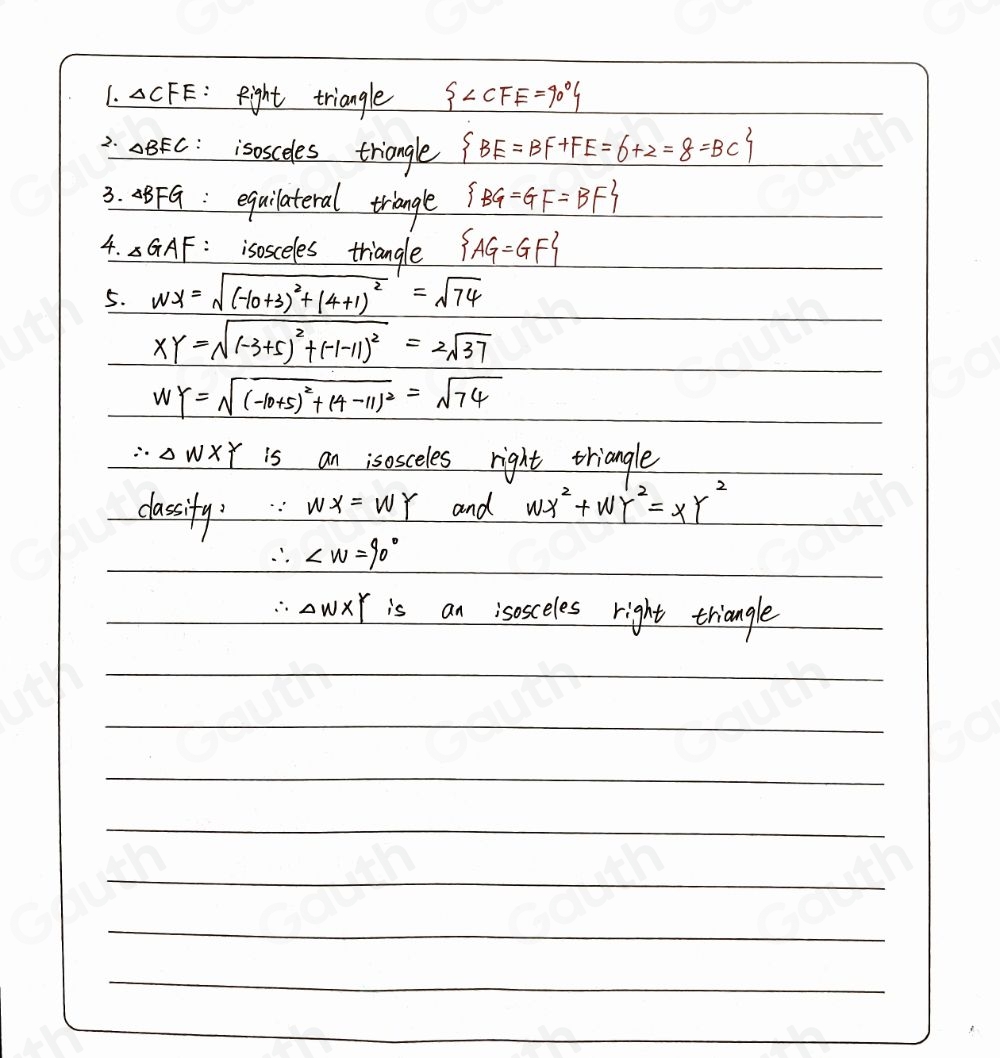 1. △CFE: right triangle {∠CFE=90°}
2. △BEC: isosceles triangle {BE=BF+FE=6+2=8=BC}
3. △BFG: equilateral triangle {BG=GF=BF}
4. △GAF: isosceles triangle {AG=GF}
5. WX=√((-10+3)²+(4+1)²) = √74
XY=√((-3+5)²+(-1-11)²) = 2√37
WY=√((-10+5)²+(4-11)²) = √74
∴ △WXY is an isosceles right triangle
classify: ∵ WX=WY and WX²+WY²=XY²
∴ ∠W=90°
∴ △WXY is an isosceles right triangle
Gauth